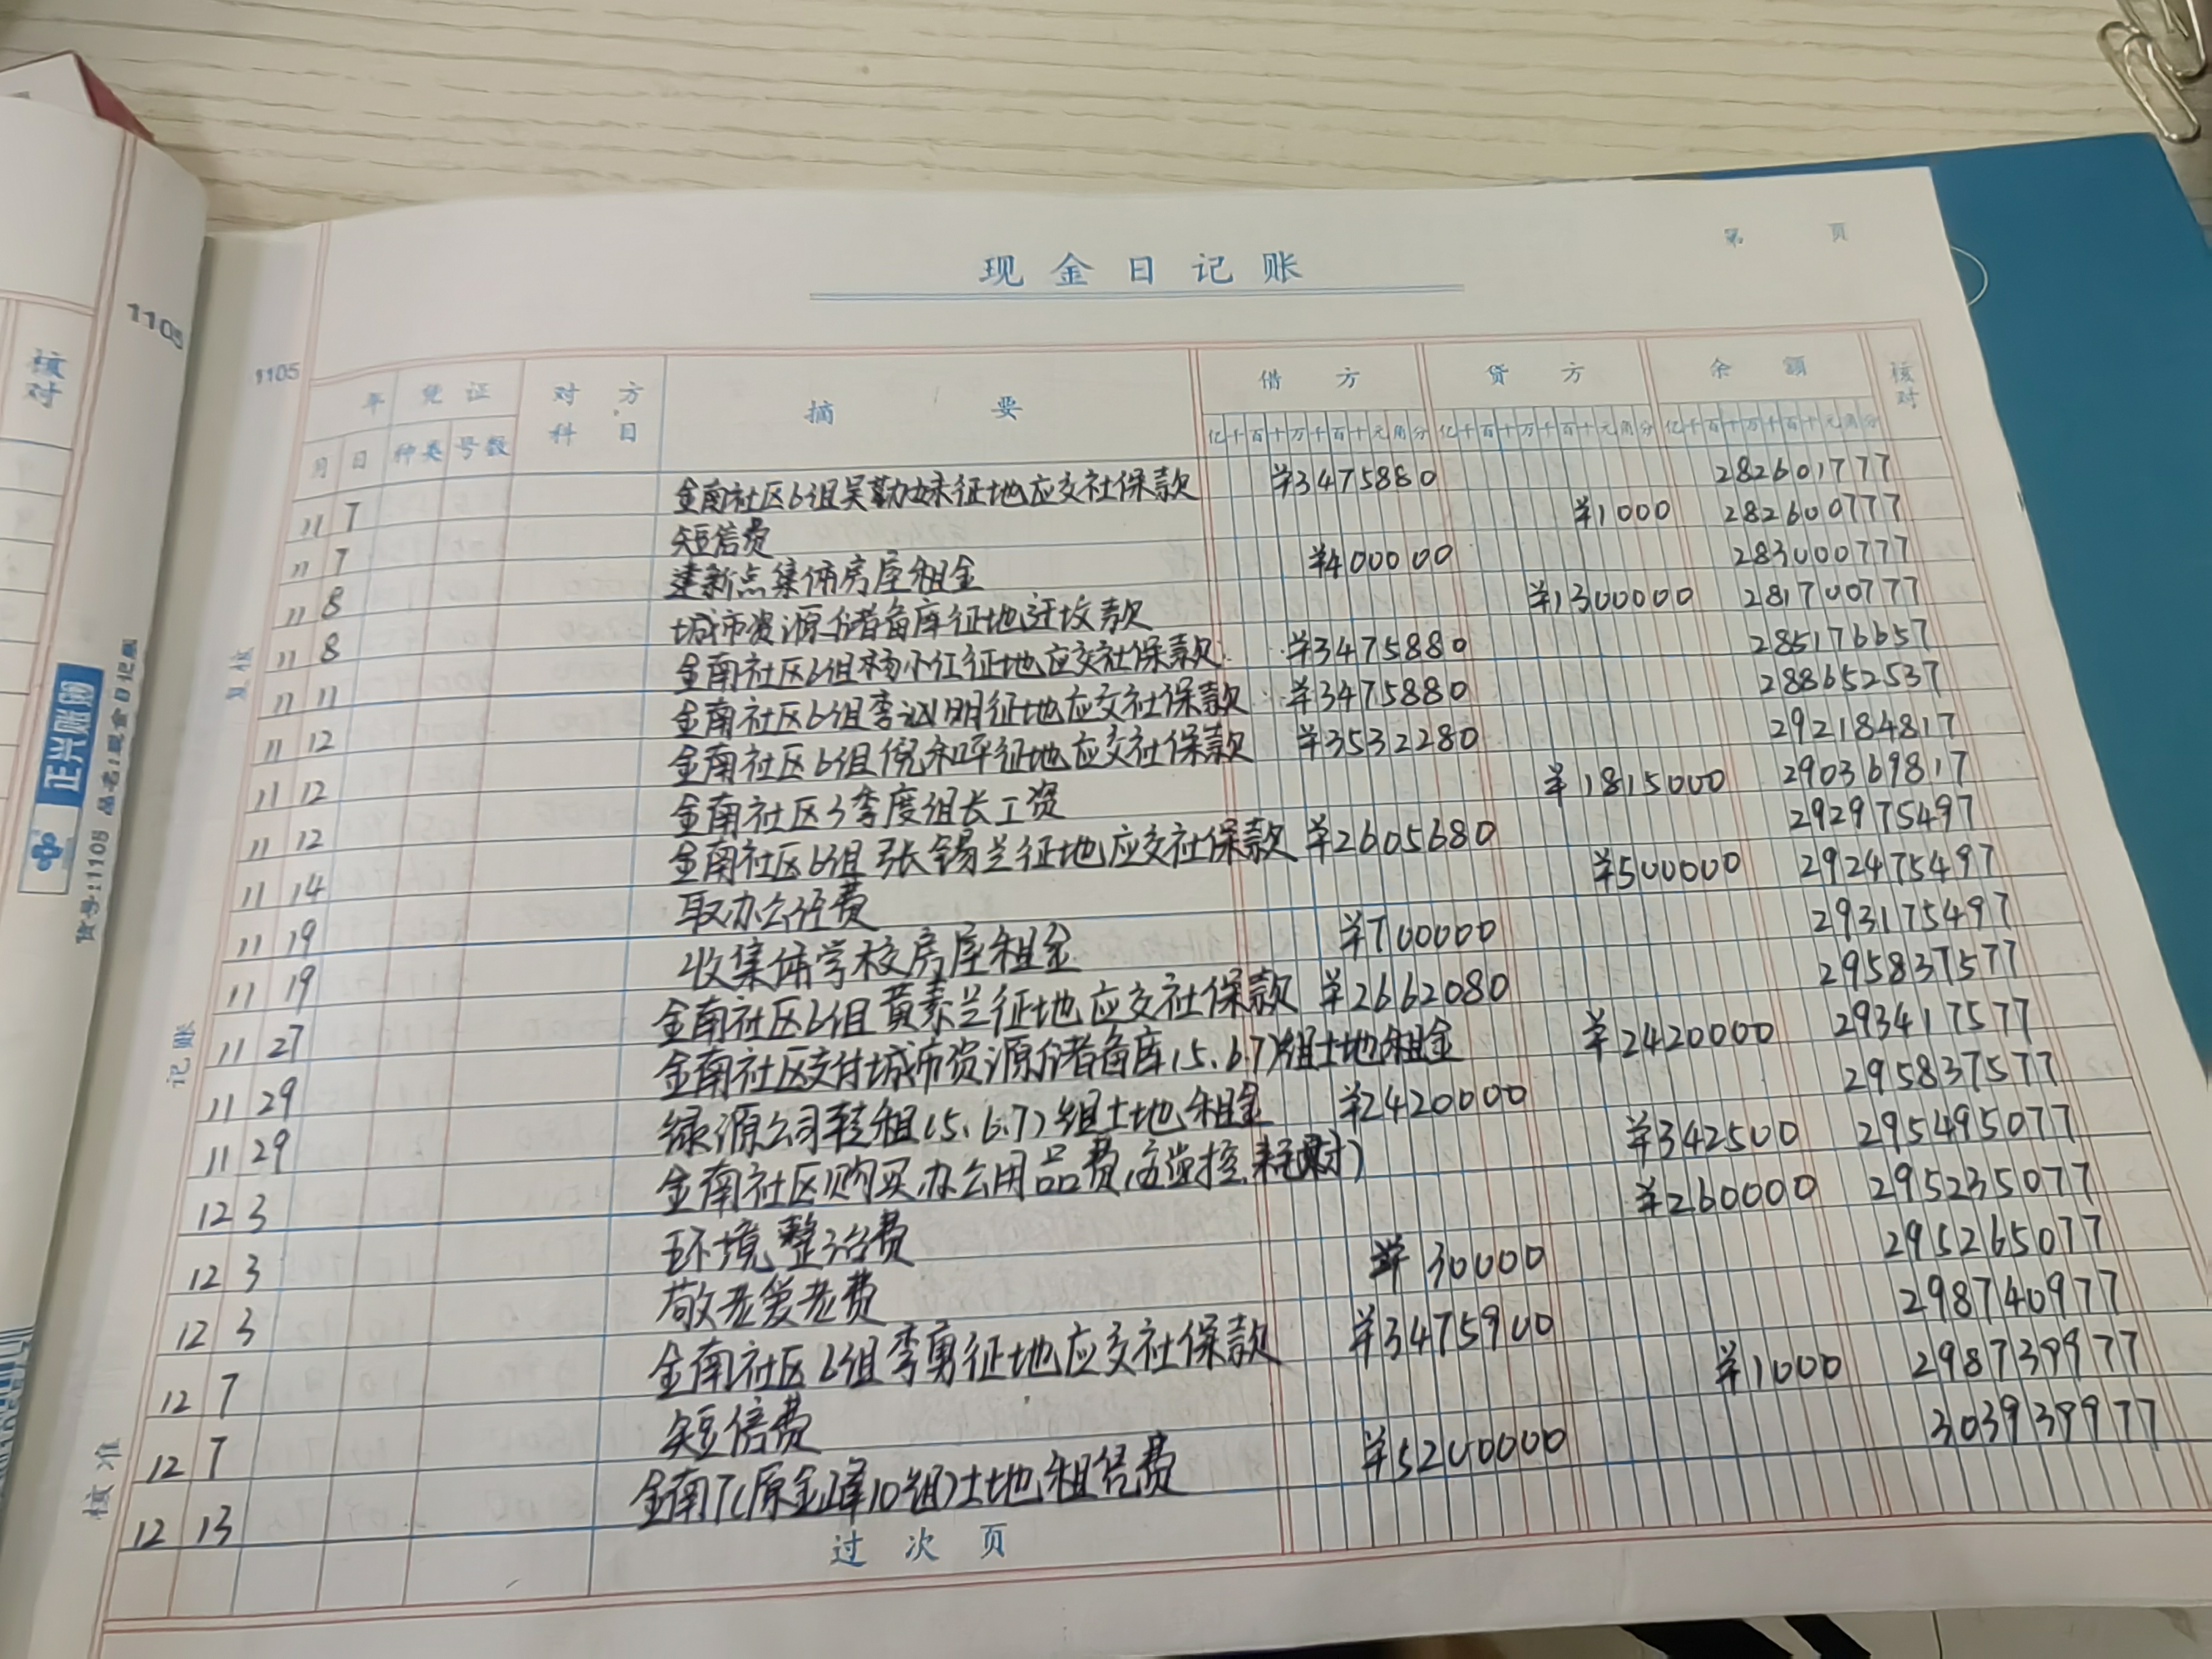 第 页
现金日记账
核对
1105
1105
年 凭证 对方科目 摘要 借方 贷方 余额 核对
月 日 种类 号数 亿千百十万千百十元角分 亿千百十万千百十元角分 亿千百十万千百十元角分
11 7 金南社区6组吴勤妹征地应交社保款 ¥3475880 282601777
11 7 短信费 ¥1000 282600777
11 8 建新点集体房屋租金 ¥400000 283000777
11 8 城市资源储备库征地迁坟款 ¥1300000 281700777
11 11 金南社区6组杨小红征地应交社保款 ¥3475880 285176657
11 12 金南社区6组李汉明征地应交社保款 ¥3475880 288652537
11 12 金南社区6组倪和平征地应交社保款 ¥3532280 292184817
11 12 金南社区3季度组长工资 ¥1815000 290369817
11 14 金南社区6组张锡兰征地应交社保款 ¥2605680 292975497
11 19 取办公经费 ¥500000 292475497
11 19 收集体学校房屋租金 ¥700000 293175497
11 27 金南社区6组黄素兰征地应交社保款 ¥2662080 295837577
11 29 金南社区支付城市资源储备库(5、6.7)组土地租金 ¥2420000 293417577
11 29 绿源公司转租(5、6.7)组土地租金 ¥2420000 295837577
12 3 金南社区购买办公用品费(含监控.耗材) ¥342500 295495077
12 3 环境整治费 ¥260000 295235077
12 3 敬老爱老费 ¥30000 295265077
12 7 金南社区6组李勇征地应交社保款 ¥3475900 298740977
12 7 短信费 ¥1000 298739977
12 13 金南7(原金峰10组)土地租赁费 ¥5200000 303939977
过次页
复核
记账
核准
正兴账册
货号:1105 品名:现金日记账